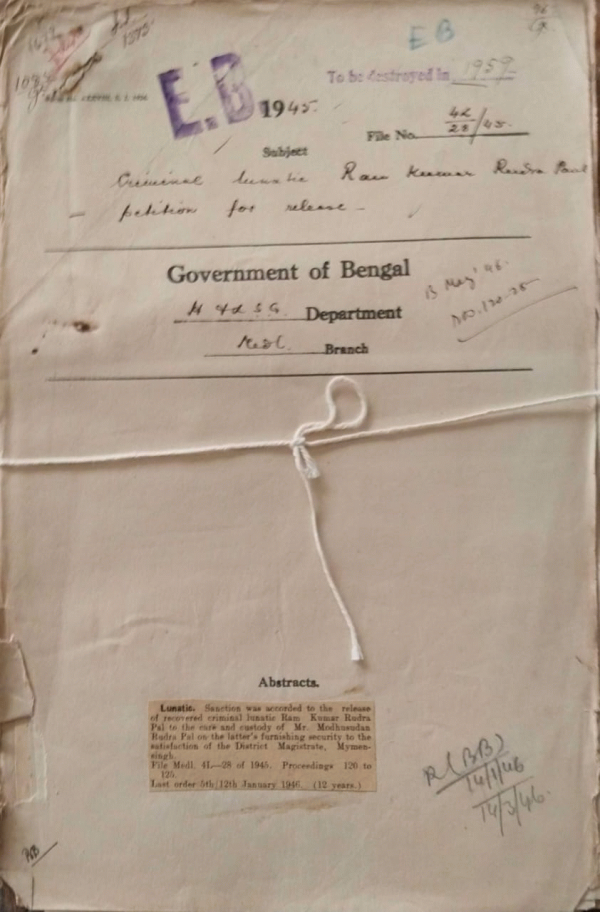 EB
To be destroyed in 1959
E.B
1945.
File No. 4L/28/45.
Subject
Criminal lunatic Ram Kumar Rudra Paul
— petition for release —
Government of Bengal
Department
Branch
B May '46.
120-25
Abstracts.
Lunatic. Sanction was accorded to the release
of recovered criminal lunatic Ram Kumar Rudra
Pal to the care and custody of Mr. Modhusudan
Rudra Pal on the latter's furnishing security to the
satisfaction of the District Magistrate, Mymen-
singh.
File Medl. 4L—28 of 1945. Proceedings 120 to
125.
Last order 5th/12th January 1946. (12 years.)
14/1/46
14/3/46.